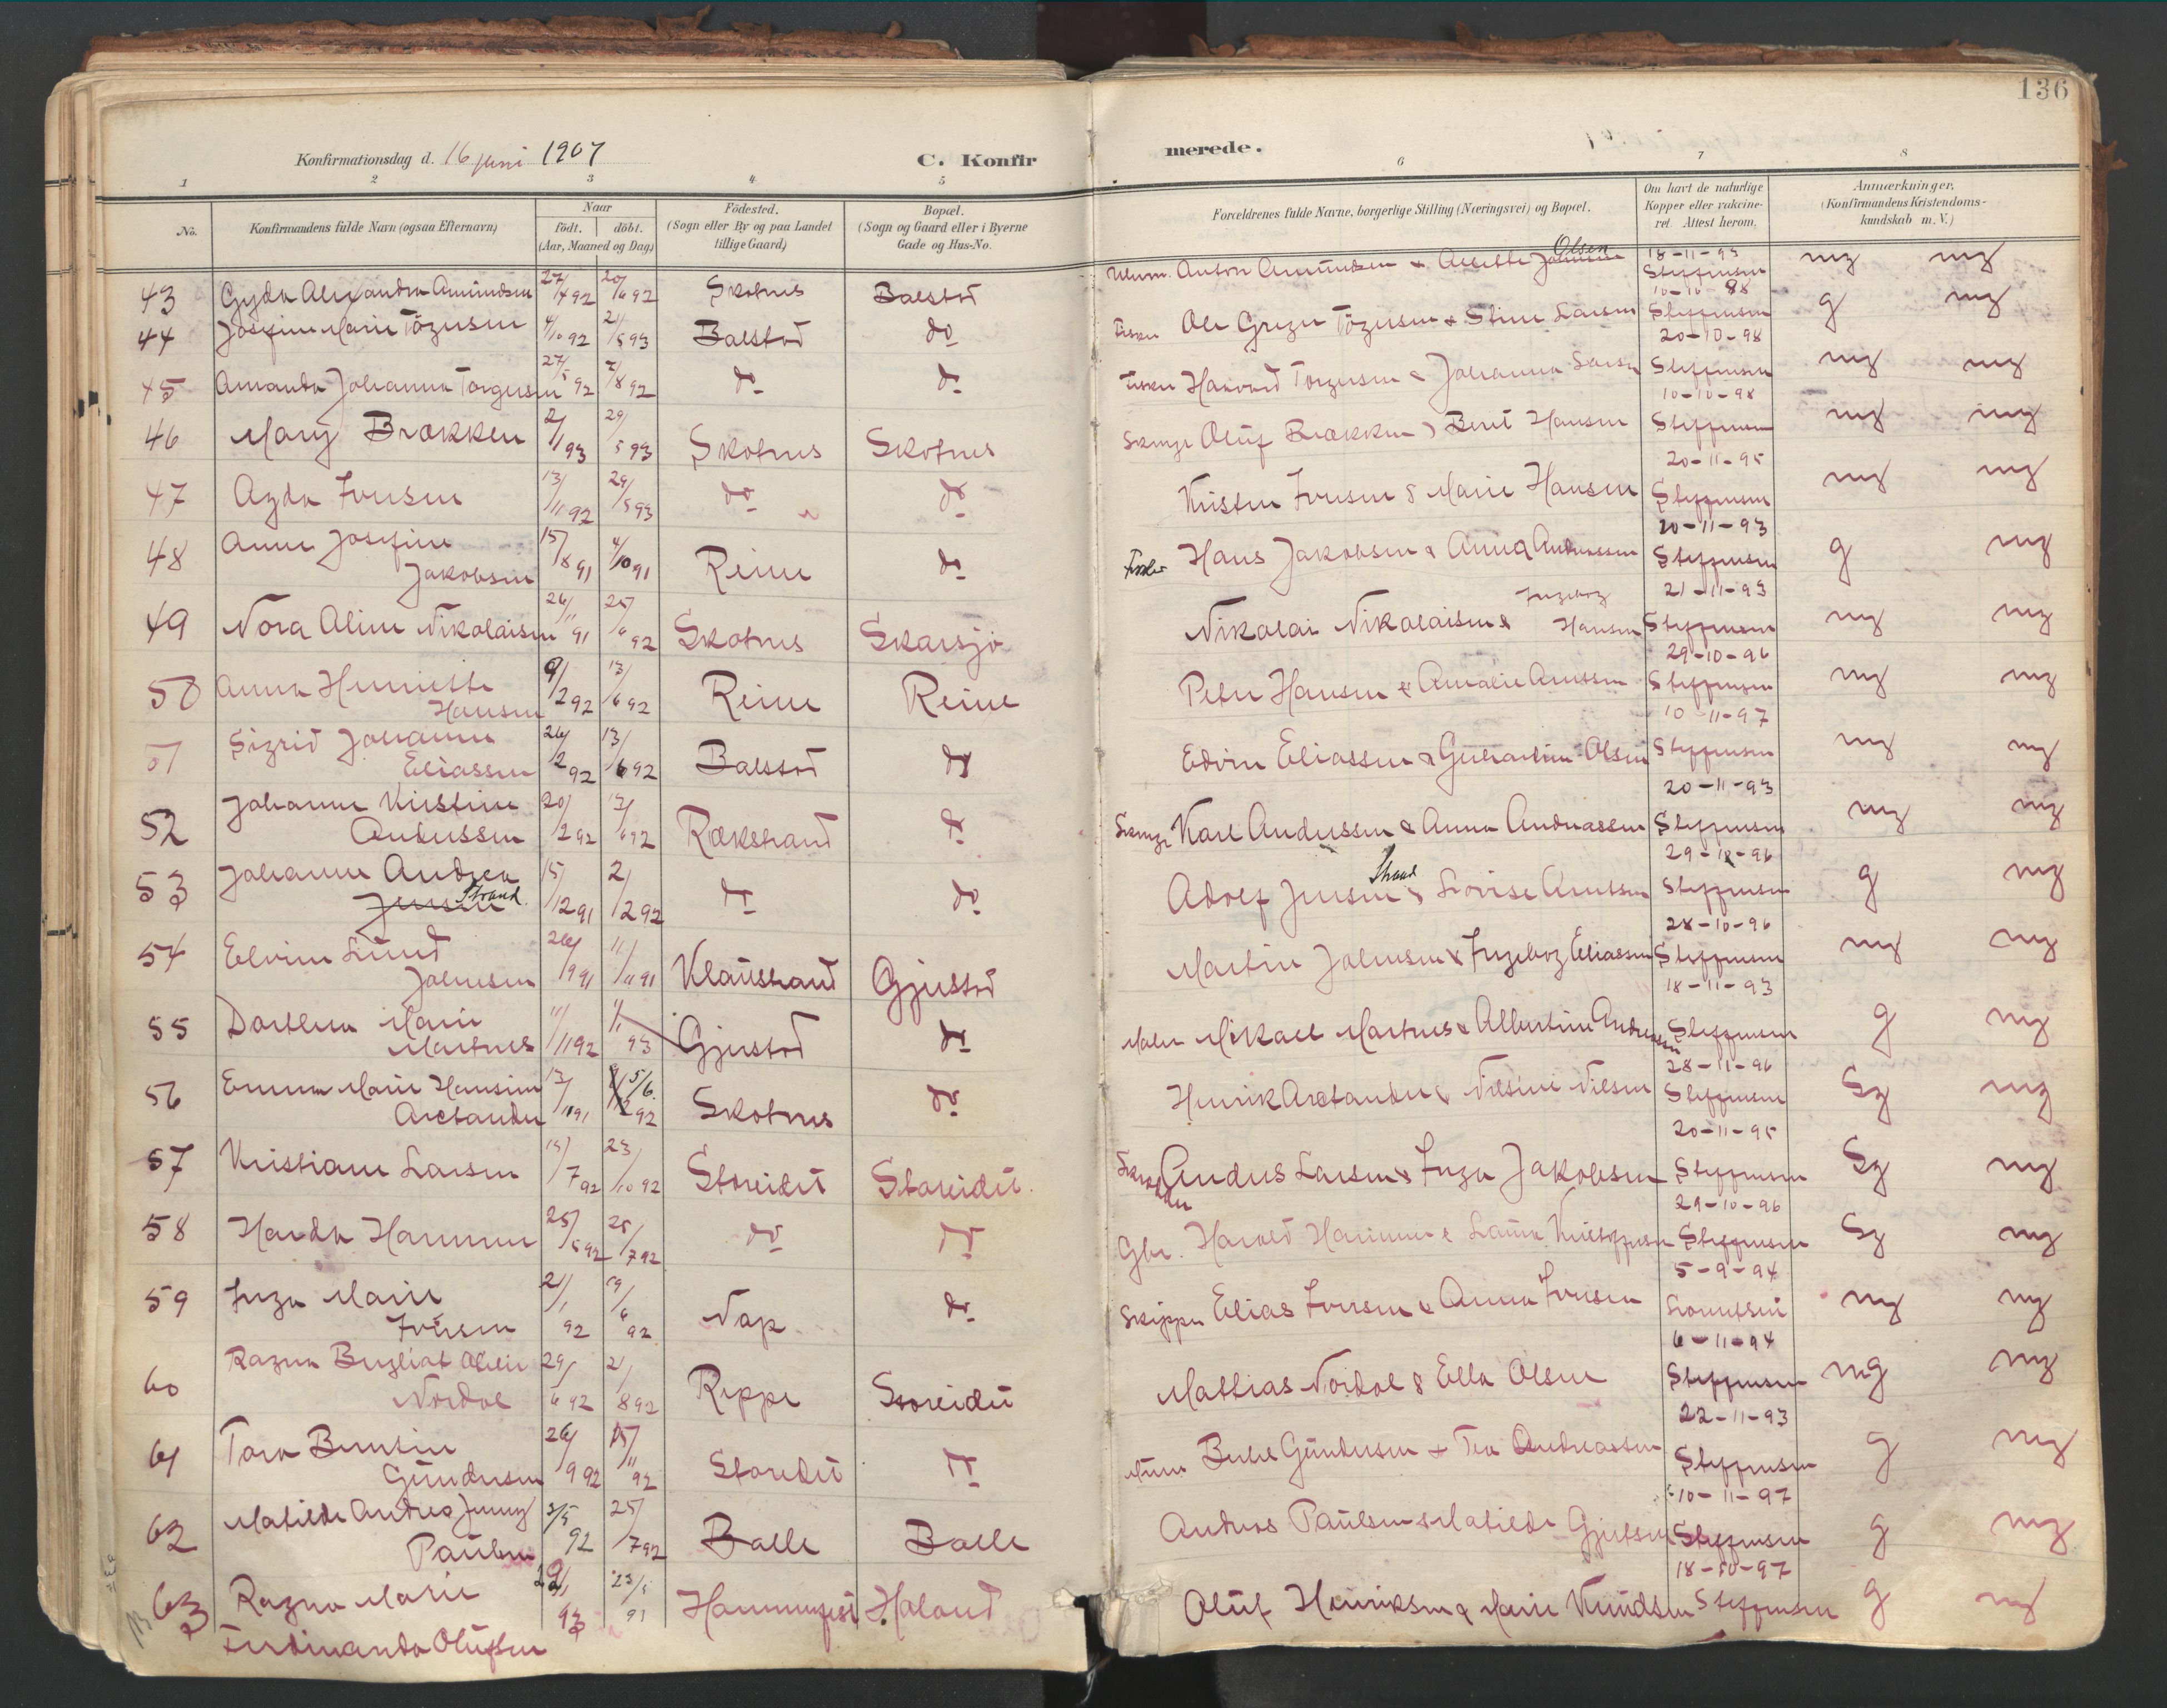 136
Konfirmationsdag d. 16 juni 1907
C. Konfirmerede.
1 2 3 4 5 6 7 8
No.
Konfirmandens fulde Navn (ogsaa Efternavn)
Naar
födt. döbt.
(Aar, Maaned og Dag)
Födested.
(Sogn eller By og paa Landet
tillige Gaard)
Bopæl.
(Sogn og Gaard eller i Byerne
Gade og Hus-No.
Forældrenes fulde Navne, borgerlige Stilling (Næringsvei) og Bopæl.
Om havt de naturlige
Kopper eller vakcine-
ret. Attest herom.
Anmærkninger,
(Konfirmandens Kristendoms-
kundskab m. V.)
43 Gyda Alexandra Amundsen 27/4 92 20/6 92 Skotnes Balstad Anton Amundsen & Olsen 18-11-93 Steffensen mg mg
44 Josefine Marie Torgersen 4/10 92 21/5 93 Balstad do Fisker Ole Greger Torgersen & Stine Larsen 10-10-98 Steffensen g mg
45 Amanda Johanna Torgersen 27/5 92 7/8 92 do do Fisker Haavard Torgersen & Johanna Larsen 20-10-98 Steffensen mg mg
46 Mary Brækken 2/1 93 29/5 93 Skotnes Skotnes Oluf Brækken & Berit Hansen 10-10-98 Steffensen mg mg
47 Agda Iversen 13/11 92 29/5 93 do do Kristen Iversen & Marie Hansen 20-11-95 Steffensen mg mg
48 Anne Josefine Jakobsen 15/8 91 4/10 91 Reine do Fisker Hans Jakobsen & Anna Andreassen 20-11-93 Steffensen g mg
49 Nora Aline Nikolaisen 26/11 91 25/6 92 Skotnes Skarsjø Nikolai Nikolaisen & Ingeborg Hansen 21-11-93 Steffensen mg mg
50 Anna Henriette Hansen 9/2 92 13/6 92 Reine Reine Peter Hansen & Amalie Arntsen 29-10-96 Steffensen mg mg
51 Sigrid Johanne Eliassen 26/2 92 13/6 92 Balstad do Edvin Eliassen & Olsen 10-11-97 Steffensen mg mg
52 Johanne Kirstine Andersen 20/2 92 13/6 92 Rækstrand do Karl Andersen & Anna Andreassen 20-11-93 Steffensen mg mg
53 Johanne Andrea Jensen Strand 15/12 91 2/12 92 do do Adolf Jensen Strand & Lovise Arntsen 29-10-96 Steffensen g mg
54 Elvine Lund Johnsen 26/9 91 11/11 91 Klausstrand Gjerstad Martin Johnsen & Ingeborg Eliassen 28-10-96 Steffensen mg mg
55 Dorthea Marie Martnes 11/11 92 1/1 93 Gjerstad do Maler Mikael Martnes & Albertine Andreassen 18-11-93 Steffensen g mg
56 Emma Marie Hansine Arctander 13/11 91 5/6 92 Skotnes do Henrik Arctander & Nilsine Nilsen 28-11-96 Steffensen Sg mg
57 Kristiane Larsen 15/7 92 23/10 92 Storeidet Storeidet Anders Larsen & Inga Jakobsen 20-11-95 Steffensen Sg mg
58 Harda Hammer 25/5 92 25/7 92 do do Gbr. Harald Hammer & Laura Kristoffersen 29-10-96 Steffensen Sg mg
59 Inga Marie Iversen 21/1 92 19/6 92 Nap do Skipper Elias Iversen & Anna Iversen 5-9-94 mg mg
60 Ragna Bergliot Nordal 29/6 92 21/8 92 Reppe Storeidet Mattias Nordal & Ella Olsen 6-11-94 Steffensen mg mg
61 Tora Gundersen 26/9 92 15/11 92 Storeidet do Gundersen & Tea Andreassen 22-11-93 Steffensen g mg
62 Matilde Andrea Jenny Paulsen 3/5 92 25/7 92 Balle Balle Anders Paulsen & Matilde Gjertsen 10-11-97 Steffensen g mg
63 Ragna Marie Ferdinanda Olufsen 23/5 91 Hammerfest Haland Oluf Henriksen & Marie Knudsen 18-10-97 Steffensen g mg